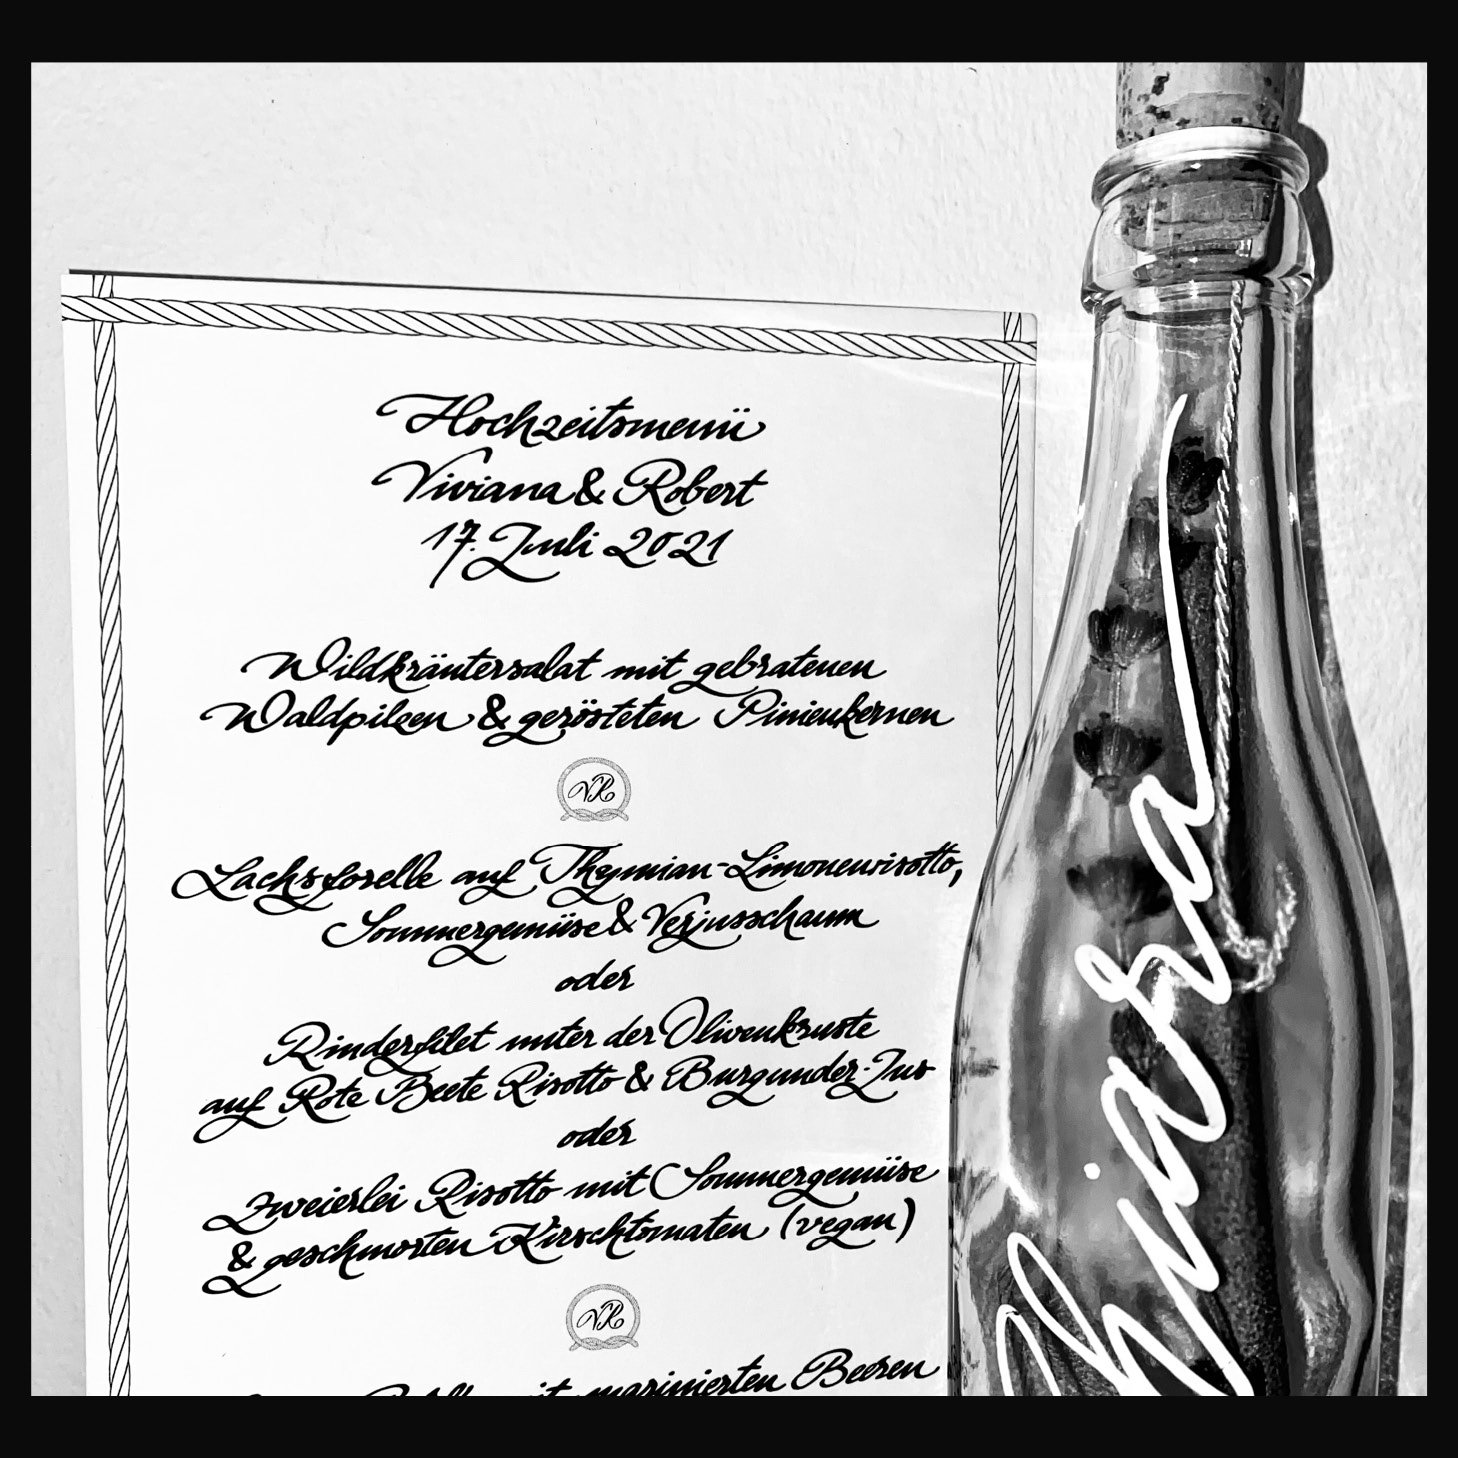 Hochzeitsmenü
Viviana & Robert
17. Juli 2021
Wildkräutersalat mit gebratenen
Waldpilzen & gerösteten Pinienkernen
VR
Lachsforelle auf Thymian-Limonenrisotto,
Sommergemüse & Verjusschaum
oder
Rinderfilet unter der Olivenkruste
auf Rote Beete Risotto & Burgunder-Jus
oder
Zweierlei Risotto mit Sommergemüse
& geschmorten Kirschtomaten (vegan)
VR
mit marinierten Beeren